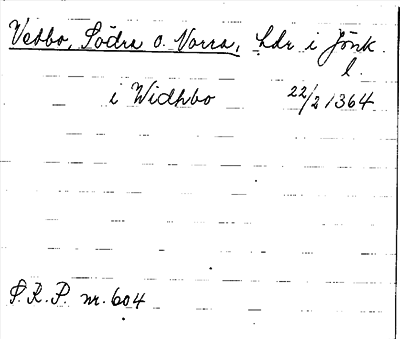 Vedbo, Södra o. Norra, hdr i Jönk.
l.
i Widhbo 22/2 1364
S.R.P. nr. 604